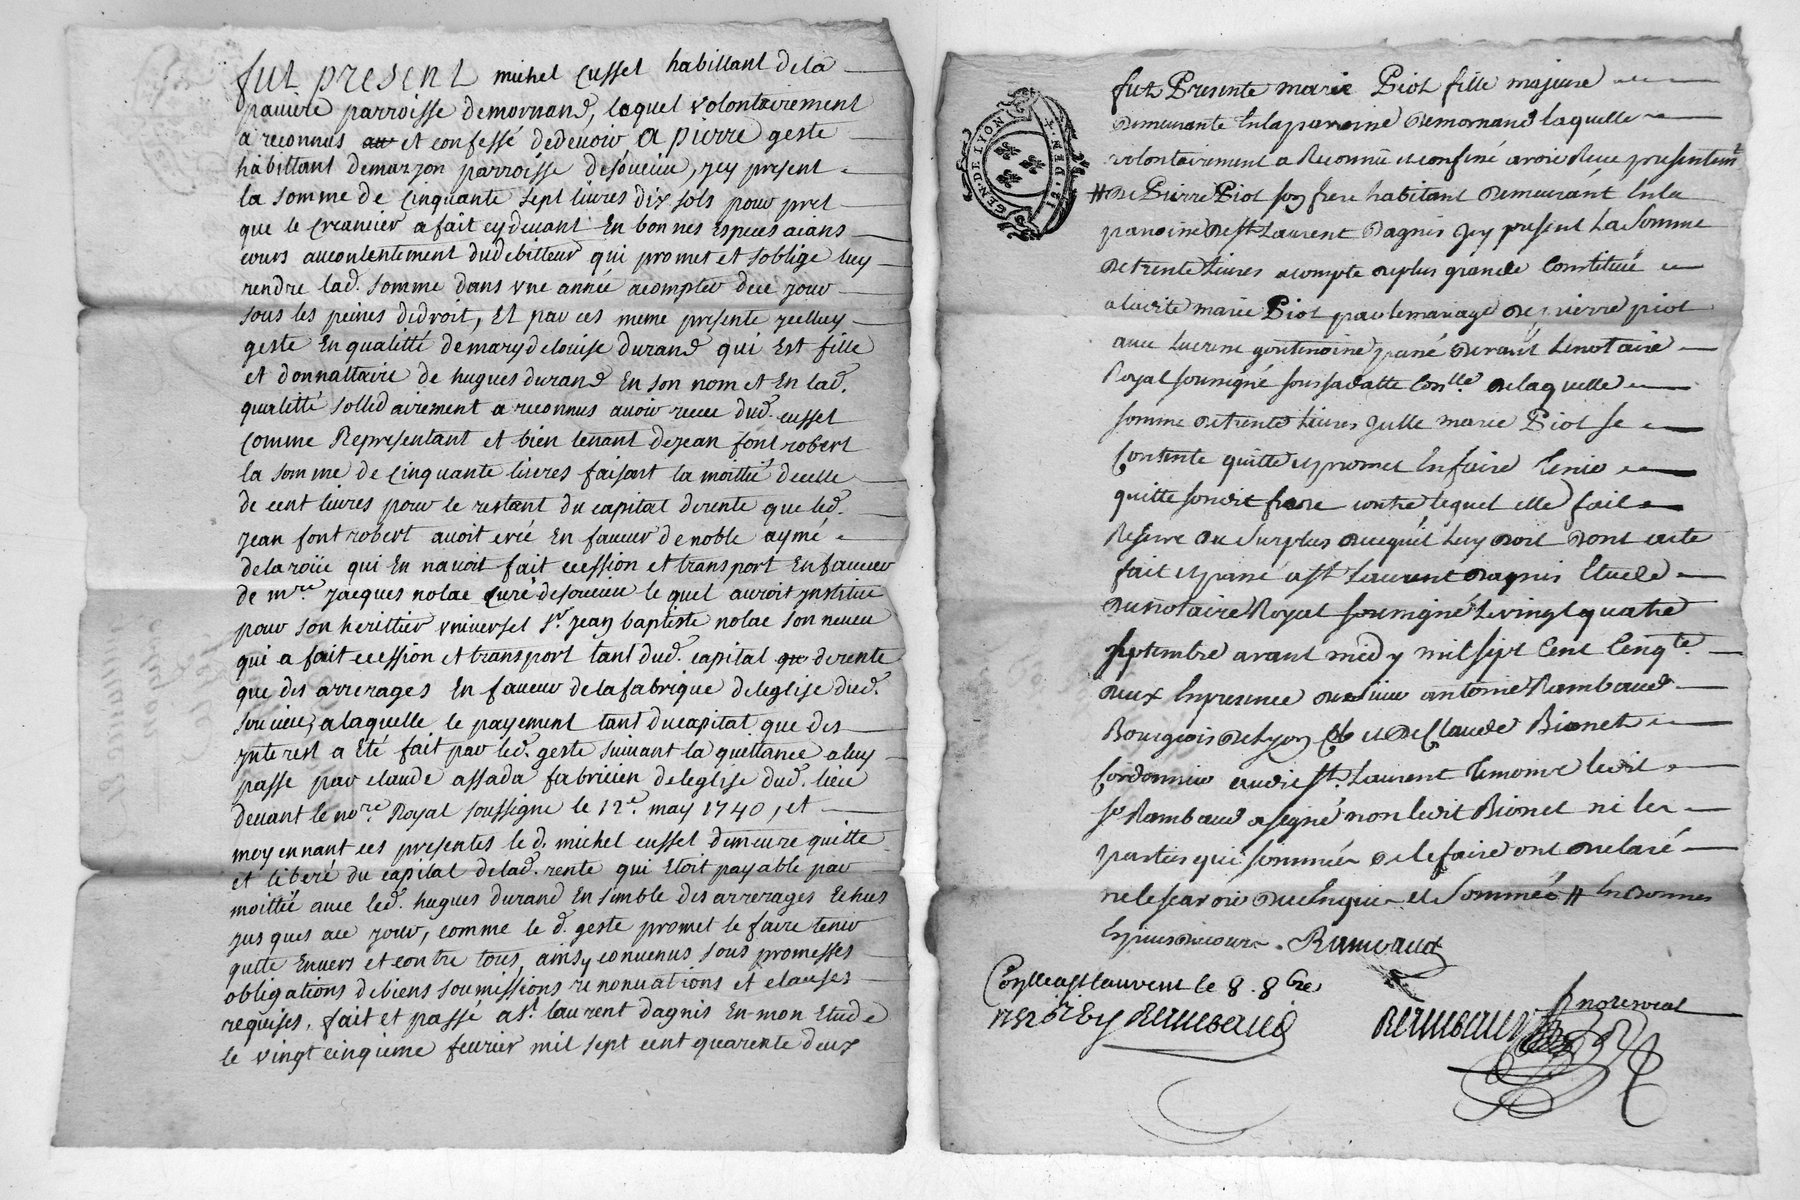 fut present michel cussel habittant dela
paviere parroisse demornand, lequel volontairement
a reconnus au et confessé dedevoir a pierre geste
habittant demarzon parroisse desoucieu, jcy present
la somme de cinquante sept livres dix sols pour pret
que le creancier a fait cydevant En bonnes Especes aians
cours aucontentement dudebitteur qui promet et soblige luy
rendre lad. somme dans vne année acompter dece jour
sous les peines dedroit, Et par ces meme presente jcelluy
geste En qualitté demary delouise durand qui Est fille
et donnattaire de hugues durand En son nom et En lad.
qualitté sollidairement a reconnus avoir receu dud. cussel
comme Representant et bien tenant dejean font robert
la somme de cinquante livres faisant la moittié decelle
de cent livres pour le restant du capital derente que led.
jean font robert avoit créé En faveur de noble aymé
delaroüe qui En navoit fait cession et transport En faveur
de m.re jacques nolac curé desoucieu le quel auroit jnstitué
pour son herittier vniversel s.r jean baptiste nolac son neveu
qui a fait cession et transport tant dud. capital qu derente
que des arrerages En faveur delafabrique deleglise dud.
soucieu, alaquelle le payement tant ducapital que des
jnterest a Eté fait par led. geste suivant la quittance aluy
passe par claude assada fabricien deleglise dud. lieu
devant le no.re Royal soussigne le 12.e may 1740, et
moyennant ces presentes le d. michel cussel demeure quitte
et liberé du capital delad. rente qui Etoit payable par
moittié avec led. hugues durand En semble des arrerages Echus
jusques ace jour, comme le d. geste promet le faire tenir
quitte Envers et contre tous, ainsy convenus sous promesses
obligations debiens soumissions renonciations et clauses
requises, fait et passé a St. laurent dagnis En mon Etude
le vingt cinqieme fevrier mil sept cent quarente deux
GEN. DE LYON
fut Presente marie Piot fille majeure
demeurante Enlaparoisse demornand laquelle
volontairement a Reconnu et confessé avoir Receu presentemt
# de Pierre Piot son frere habitant demeurant Enla
paroisse de St Laurent dagnis jcy present La Somme
de trente Livres acompte deplus grande Constituée
aladite marie Piot par lemariage de pierre piot
avec passé devant Lenotaire
Royal soussigné soussadatte de laquelle
somme detrente Livres marie Piot se
Contente quitte et promet Enfaire Tenir
quitte sondit frere contre lequel elle fait
Reserve du Surplus Luy doit dont acte
fait et passé a St Laurent dagnis Etude
dunotaire Royal soussigné Le vingt quatre
septembre avant midy mil sept Cent Cinqte.
deux Enpresence de sieur antoine Rambaud
Bourgeois de Lyon et de Claude Bionet
Cordonnier audit St. Laurent Temoins ledit
Sr Rambaud a signé non ledit Bionet ni les
parties qui sommées de lefaire ont declaré
nelesçavoir deceEnquis et Sommées # En bonnes
Espèces decours. Rambaud
Conlle a St laurent le 8. 8bre
1752 Rambaud
Rambaud noreroial